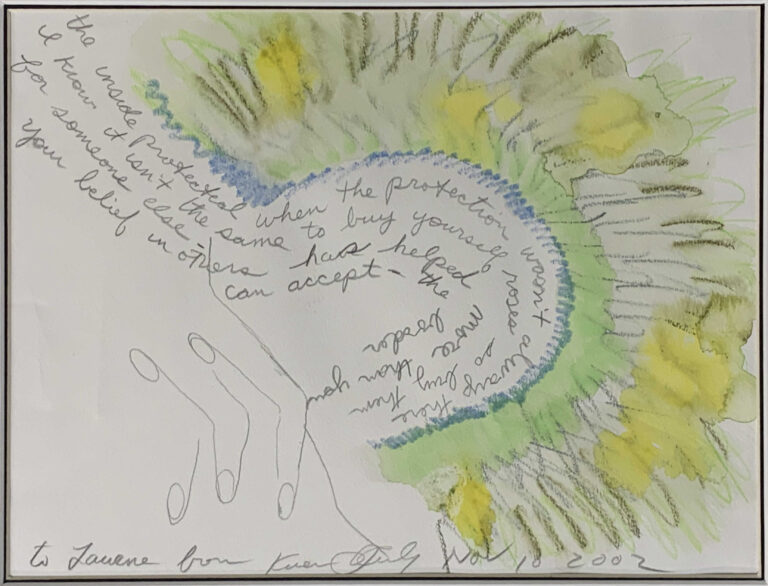 the inside protected when the protection wasn't always there
I know it isn't the same to buy yourself roses so buy them
for someone else -
your belief in others have helped more than you
can accept - the
to from Nov 10 2002